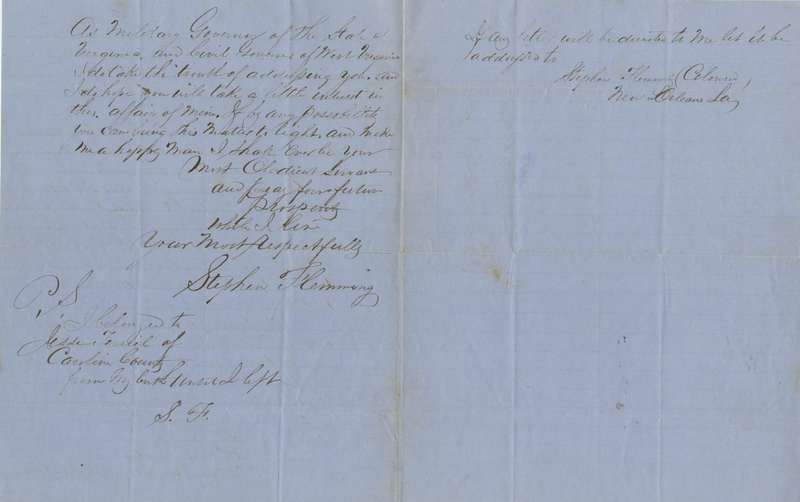 As Military Governor of the State of
Virginia, and Civil Governor of West Virginia
I do take the of addressing you, and
I do hope you will take a little interest in
this affair of mine. If by any possibility
you can bring this matter to light, and make
me a happy man, I shall Ever be your
Most Obedient Servant
and pray for future
Prosperity
while I live
Your Most Respectfully
Stephen Flemming
P.S
I belonged to
Jesse of
Caroline County
from My birth until I left
S. F.
If any be directed to Me let it be
addressed to
Stephen Flemming (Colored)
New Orleans La